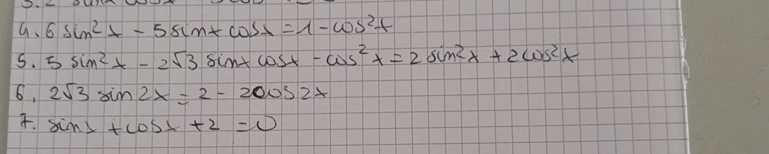 4. 6 sin²x - 5 sinx cosx = 1 - cos²x
5. 5 sin²x - 2√3 sinx cosx - cos²x = 2 sin²x + 2cos²x
6. 2√3 sin 2x = 2 - 2cos2x
7. sinx + cosx + 2 = 0